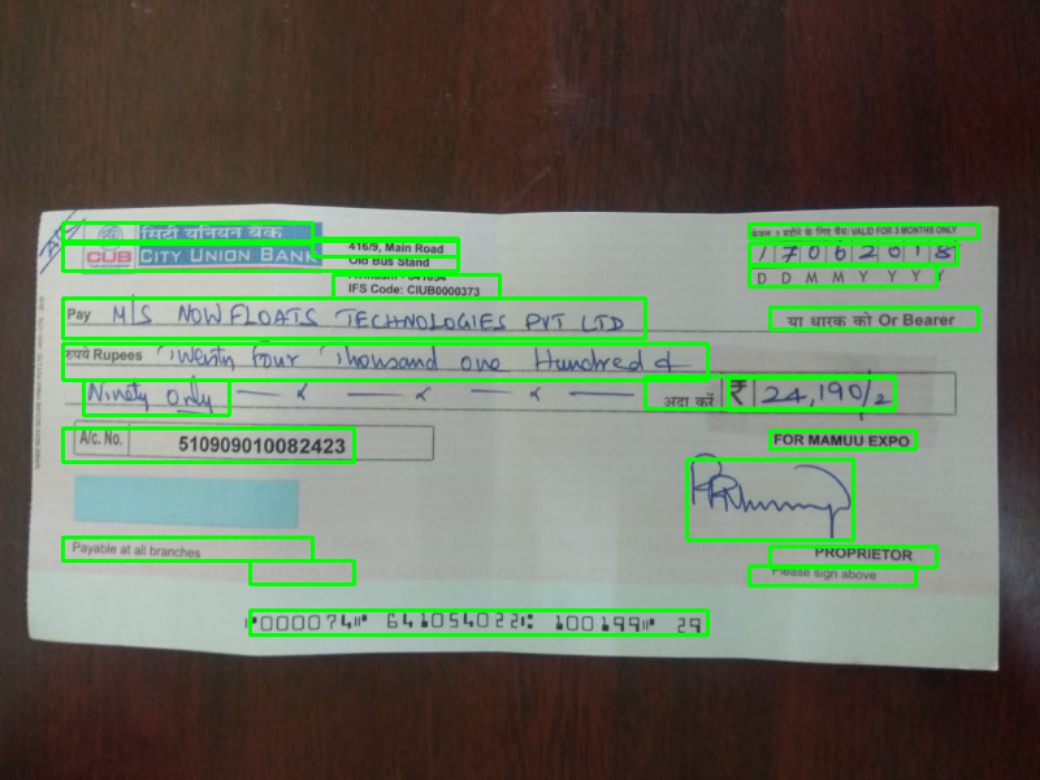 सिटी यूनियन बैंक
CUB CITY UNION BANK
416/9, Main Road
Old Bus Stand
IFS Code: CIUB0000373
केवल 3 महीने के लिए वैध/ VALID FOR 3 MONTHS ONLY
17062018
D D M M Y Y Y Y
Pay M/S NOWFLOATS TECHNOLOGIES PVT LTD
या धारक को Or Bearer
रुपये Rupees Twenty four Thousand one Hundred &
Ninety only
अदा करें ₹ 24,190/2
A/c. No. 510909010082423
FOR MAMUU EXPO
Payable at all branches
PROPRIETOR
Please sign above
⑈000074⑈ 641054022⑆ 100199⑈ 29